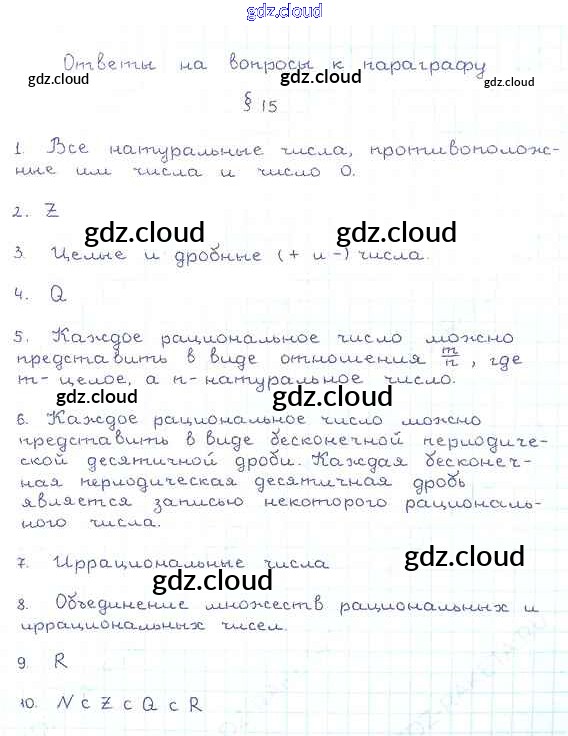 gdz.cloud
Ответы на вопросы к параграфу
gdz.cloud gdz.cloud gdz.cloud
§ 15
1. Все натуральные числа, противополож-
ные им числа и число 0.
2. Z
gdz.cloud gdz.cloud
3. Целые и дробные (+ и -) числа.
4. Q
5. Каждое рациональное число можно
представить в виде отношения m/n, где
m - целое, а n - натуральное число.
gdz.cloud gdz.cloud
6. Каждое рациональное число можно
представить в виде бесконечной периодиче-
ской десятичной дроби. Каждая бесконеч-
ная периодическая десятичная дробь
является записью некоторого рациональ-
ного числа.
7. Иррациональные числа
gdz.cloud gdz.cloud
8. Объединение множеств рациональных и
иррациональных чисел.
9. R
10. N c Z c Q c R